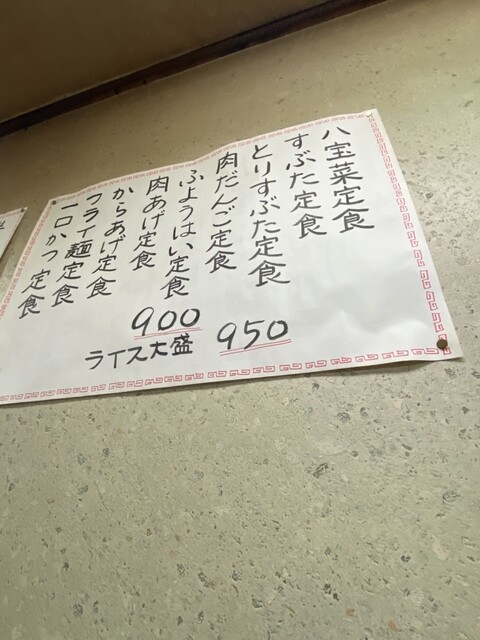 八宝菜定食
すぶた定食
とりすぶた定食
肉だんご定食
ふようはい定食
肉あげ定食
からあげ定食
フライ麺定食
一口かつ定食
900
ライス大盛 950